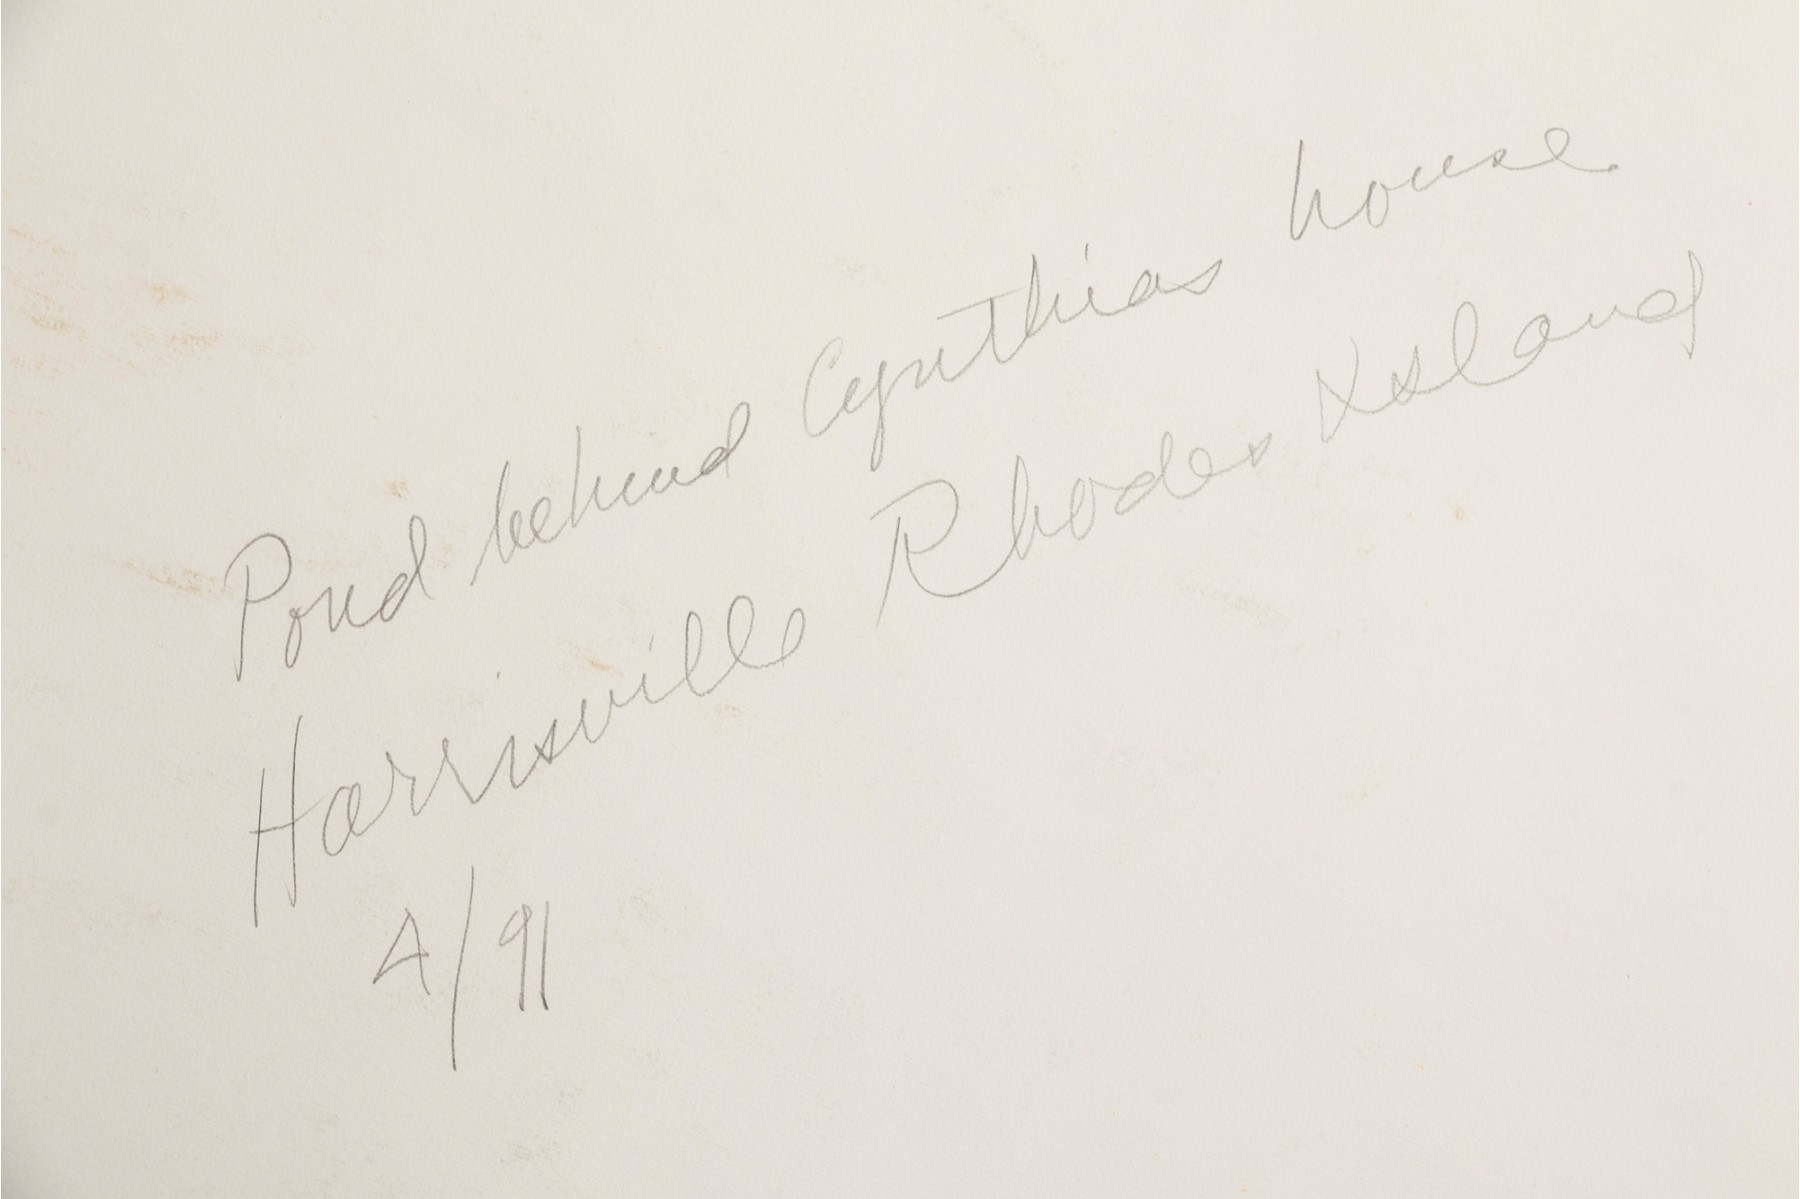 Pond behind Cynthias house
Harrisville Rhodes Island
4/91